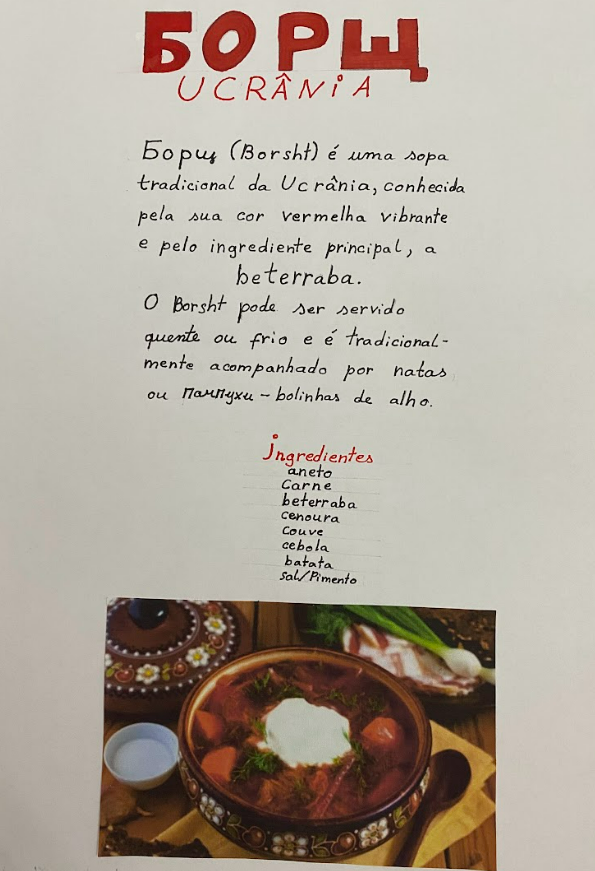 БОРЩ
UCRÂNIA
Борщ (Borsht) é uma sopa
tradicional da Ucrânia, conhecida
pela sua cor vermelha vibrante
e pelo ingrediente principal, a
beterraba.
O Borsht pode ser servido
quente ou frio e é tradicional-
mente acompanhado por natas
ou Пампухи - bolinhas de alho.
ingredientes
aneto
Carne
beterraba
cenoura
couve
cebola
batata
sal/Pimento